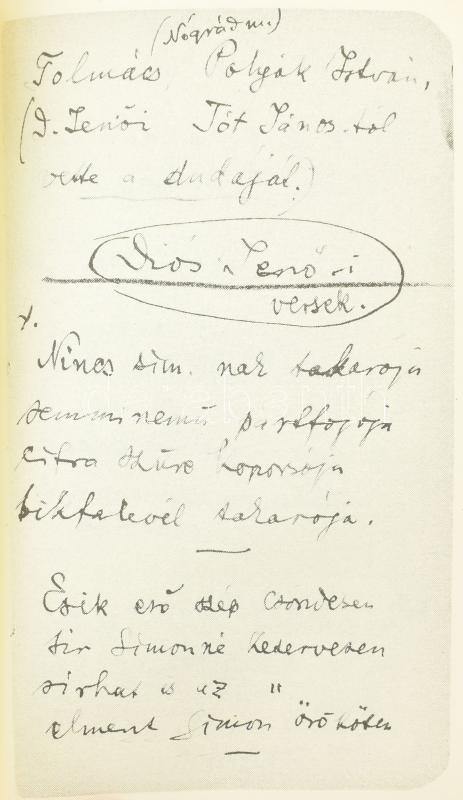 (Nógrád m.)
Tolmács, Polyák István,
(D. Jenői Tót János-tól
vette a dudáját.)
Diós-Jenő-i
versek.
x.
Nincs sim. nak takarója
semminemű pártfogója
cifra szűre koporsója
bikfalevél takarója.
Esik eső szép csöndesen
sir Simonné keservesen
sirhat is az "
elment Simon örökösen